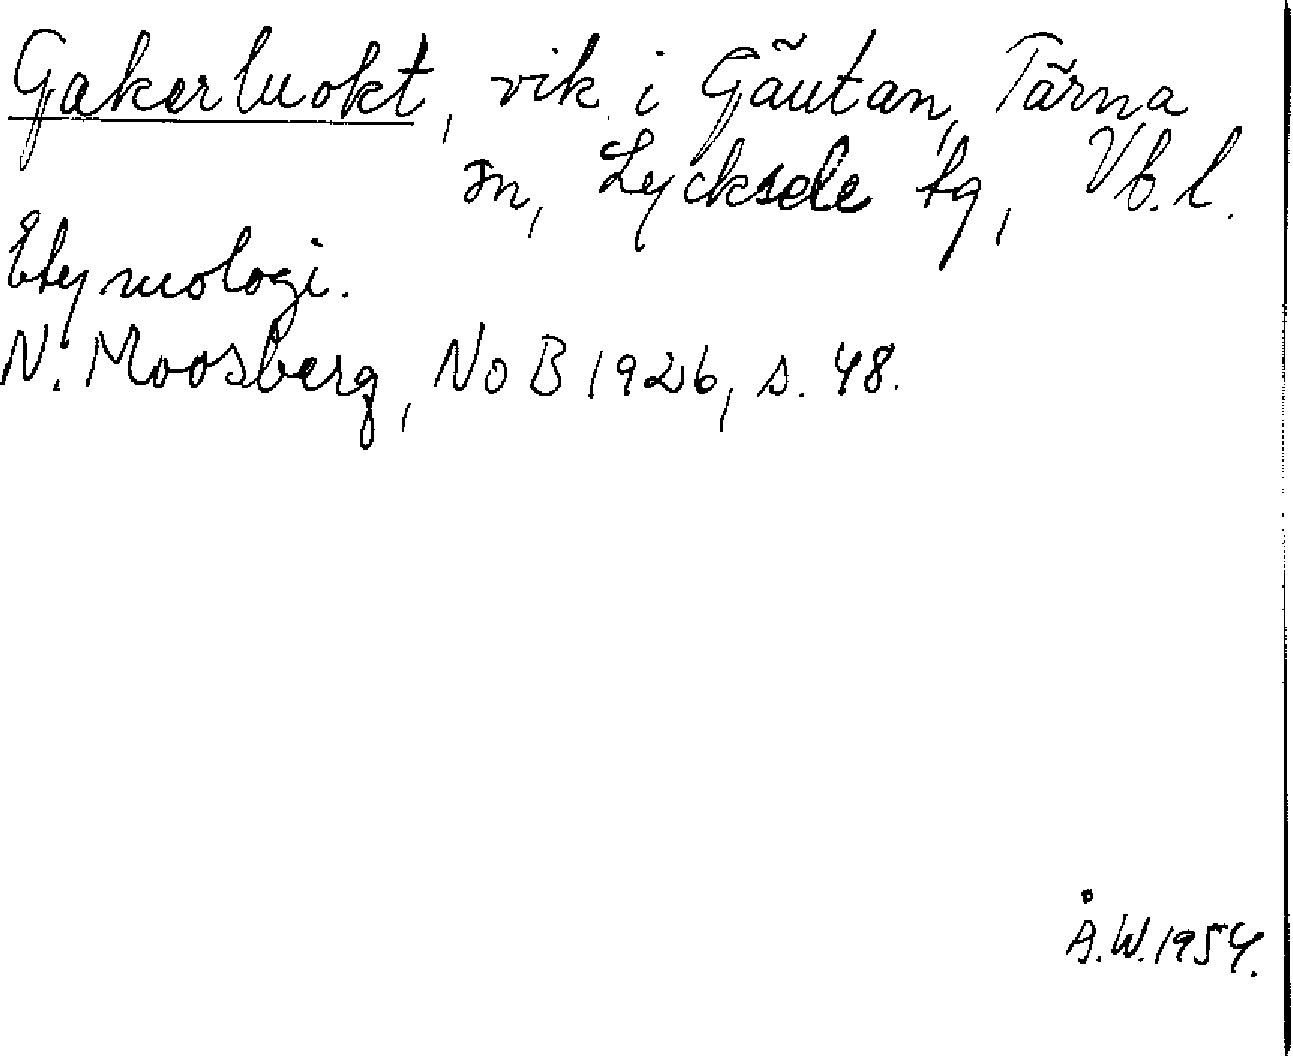 Gakerluokt, vik i Gäutan, Tärna
sn, Lycksele tg, Vb. l.
Etymologi.
N. Moosberg, NoB 1926, s. 48.
Å.W. 1954.